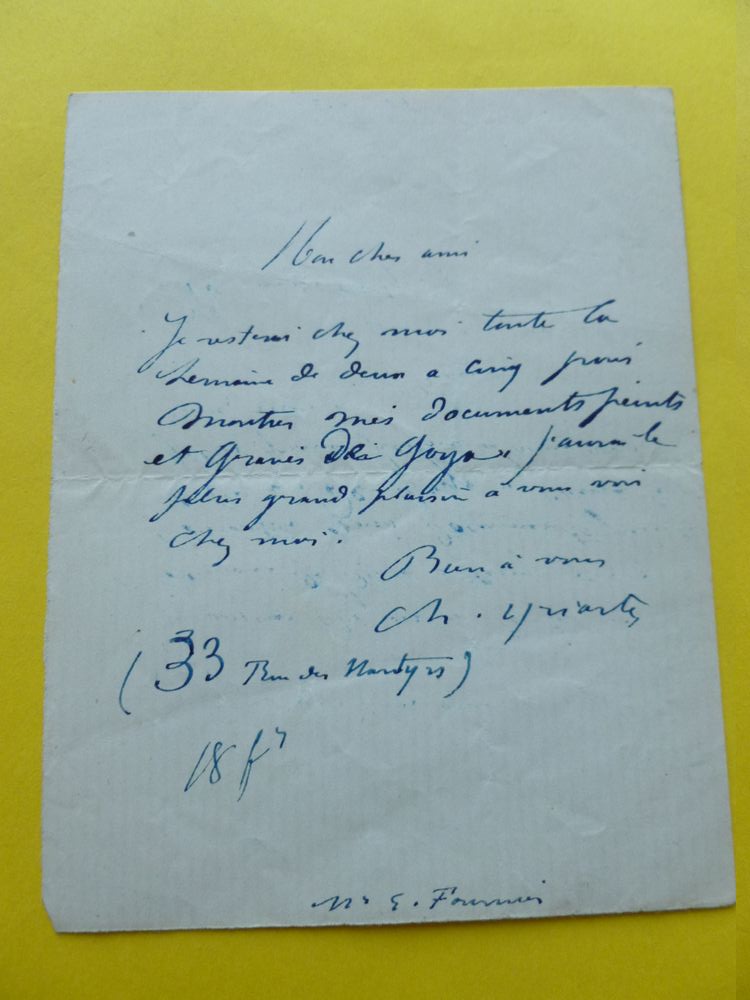 Mon cher ami
Je resterai chez moi toute la
semaine de deux a cinq pour
montrer mes documents peints
et gravés de Goya, j'aurai le
plus grand plaisir à vous voir
chez moi.
Bien à vous
Ch. Yriarte
(33 Rue des Martyrs)
18 fr
Mr E. Fournier